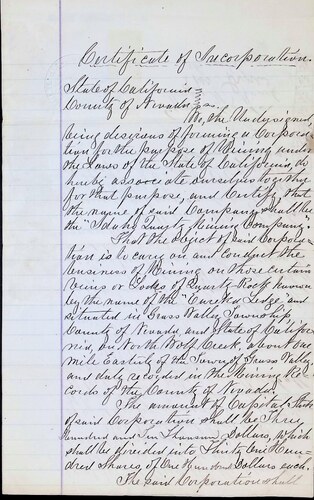 Certificate of Incorporation.
State of California
County of Nevada ss.
We, the Undersigned,
being desirous of forming a Corpora-
tion for the purpose of Mining under
the Laws of the State of California, do
hereby associate ourselves together
for that purpose, and Certify, that
the name of said Company shall be
the "Idaho Quartz Mining Company."
That the object of said Corpora-
tion is to carry on and conduct the
business of Mining on those certain
veins or Lodes of Quartz Rock known
by the name of the "Eureka Ledge" and
situated in Grass Valley Township
County of Nevada and State of Califor-
nia, on North Wolf Creek, about one
mile Easterly of the Town of Grass Valley
and duly recorded in the Mining Re-
cords of the County of Nevada.
The amount of Capital Stock
of said Corporation shall be Three
Hundred and Ten Thousand Dollars, which
shall be divided into Thirty One Hun-
dred Shares, of One Hundred Dollars each.
The said Corporation shall